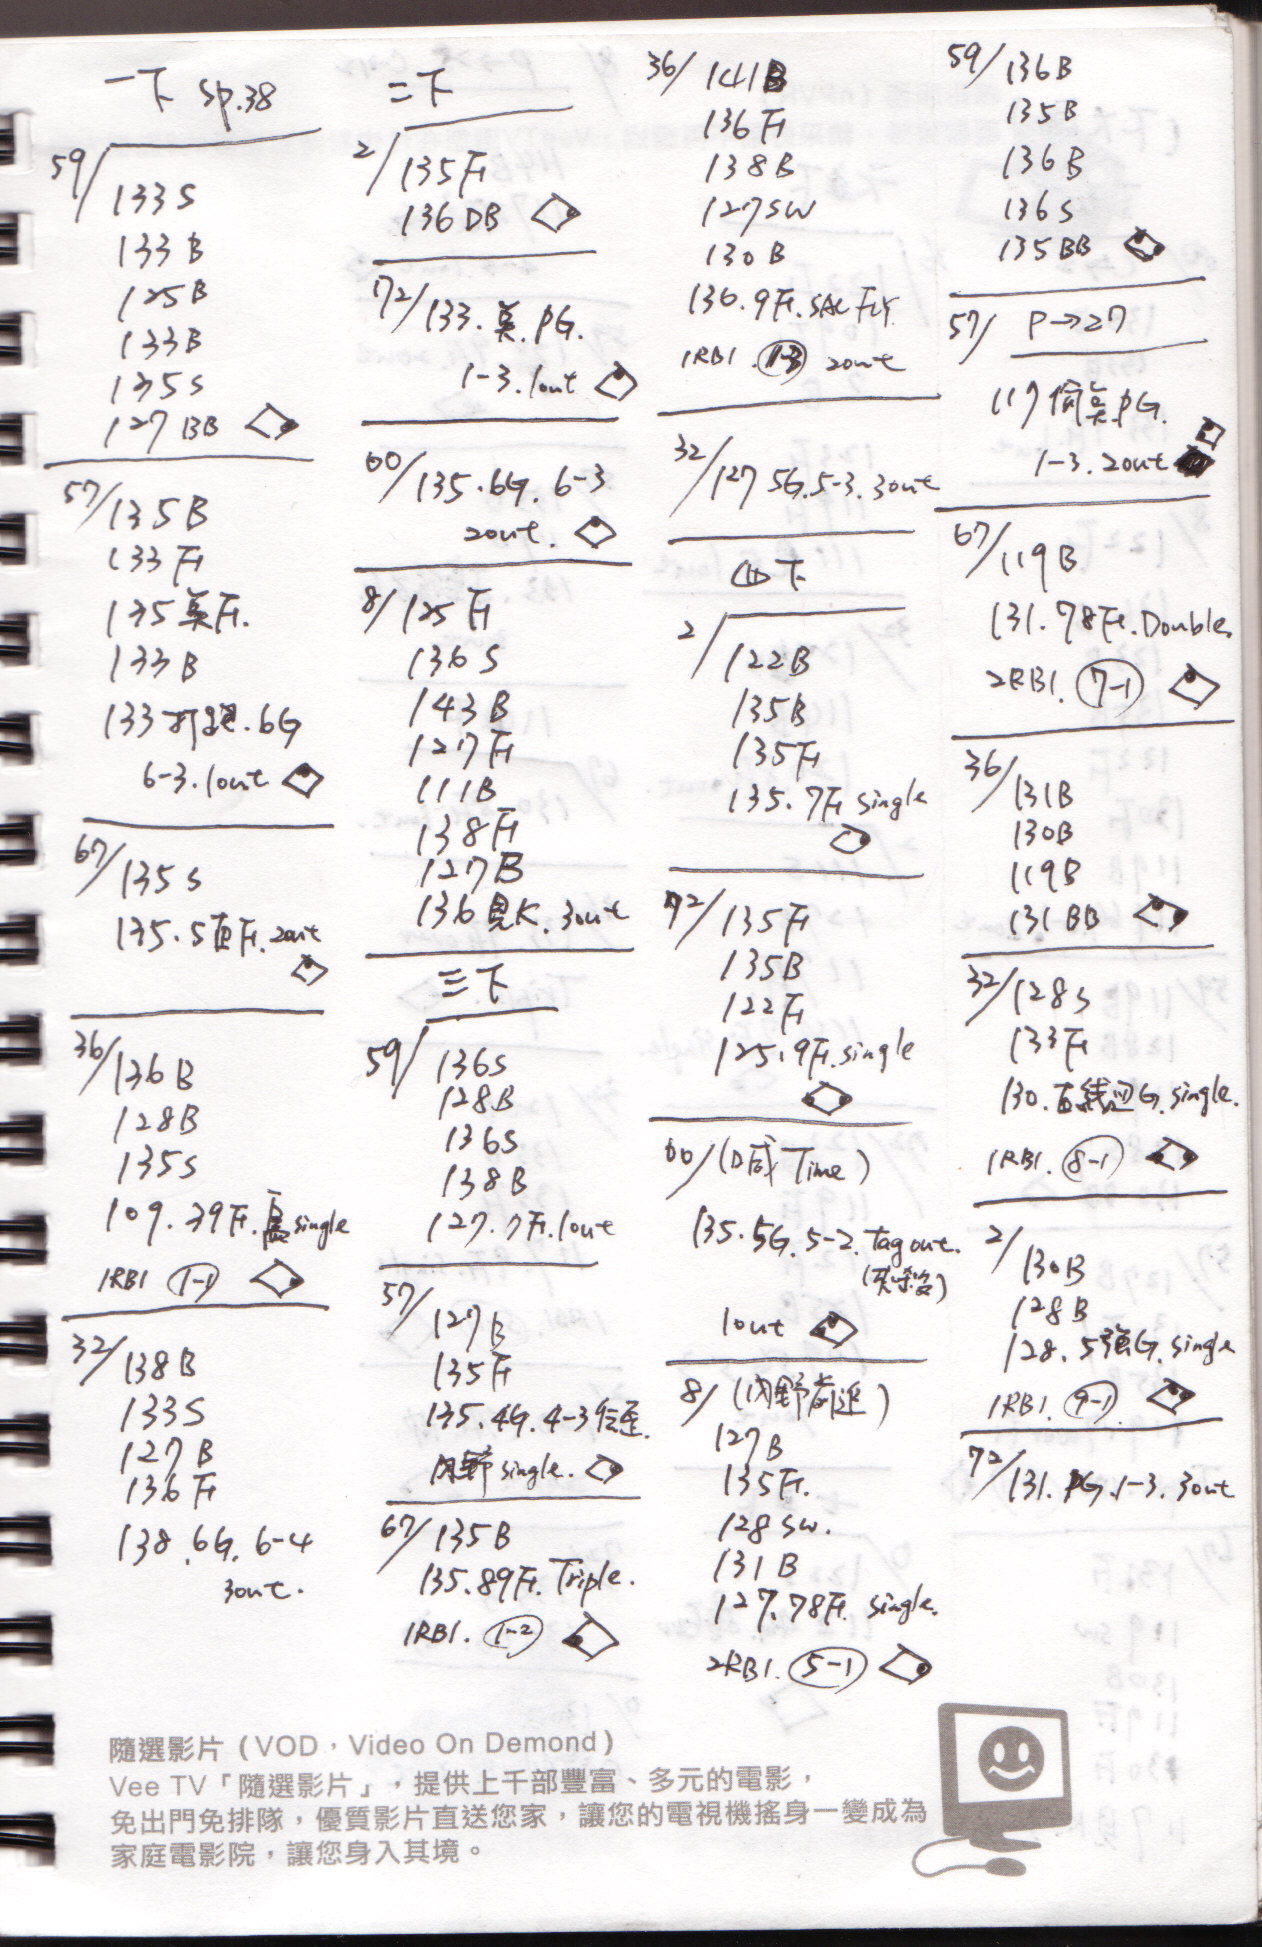 一下 sp.38
59/
133 S
133 B
125 B
133 B
135 S
127 BB
57/135 B
133 F
135 F.
133 B
133 打跑.6G
6-3.1out
67/135 S
135.5 F. 2out
36/136 B
128 B
135 S
109.39F. single
1RBI 1-1
32/138 B
133 S
127 B
136 F
138.6G. 6-4
3out.
二下
2/135 F
136 DB
72/133. PG.
1-3.1out
00/135.6G. 6-3
2out.
8/125 F
136 S
143 B
127 F
111 B
138 F
127 B
136 見K. 3out
三下
59/136 S
128 B
136 S
138 B
127.7F.1out
57/127 B
135 F
135.4G.4-3
內野 single.
67/135 B
135.89F. Triple.
1RBI. 1-2
36/141 B
136 F
138 B
127 SW
130 B
136.9F. SAC FLY.
1RBI. 1-3 2out
32/127 5G.5-3.3out
四下
2/122 B
135 B
135 F
135.7F single
72/135 F
135 B
122 F
125.9F. single
00/(D Time)
135.5G.5-2. Tag out.
1out
8/(內野前進)
127 B
135 F.
128 SW.
131 B
127.78F. single.
2RBI. 5-1
59/136 B
135 B
136 B
136 S
135 BB
57/ P→27
117 PG.
1-3.2out
67/119 B
131.78F. Double.
2RBI. 7-1
36/131 B
130 B
119 B
131 BB
32/128 S
133 F
130. G. single.
1RBI. 8-1
2/130 B
128 B
128.5強G. single
1RBI. 9-1
72/131. PG.1-3. 3out
隨選影片（VOD，Video On Demond）
Vee TV「隨選影片」，提供上千部豐富、多元的電影，
免出門免排隊，優質影片直送您家，讓您的電視機搖身一變成為
家庭電影院，讓您身入其境。